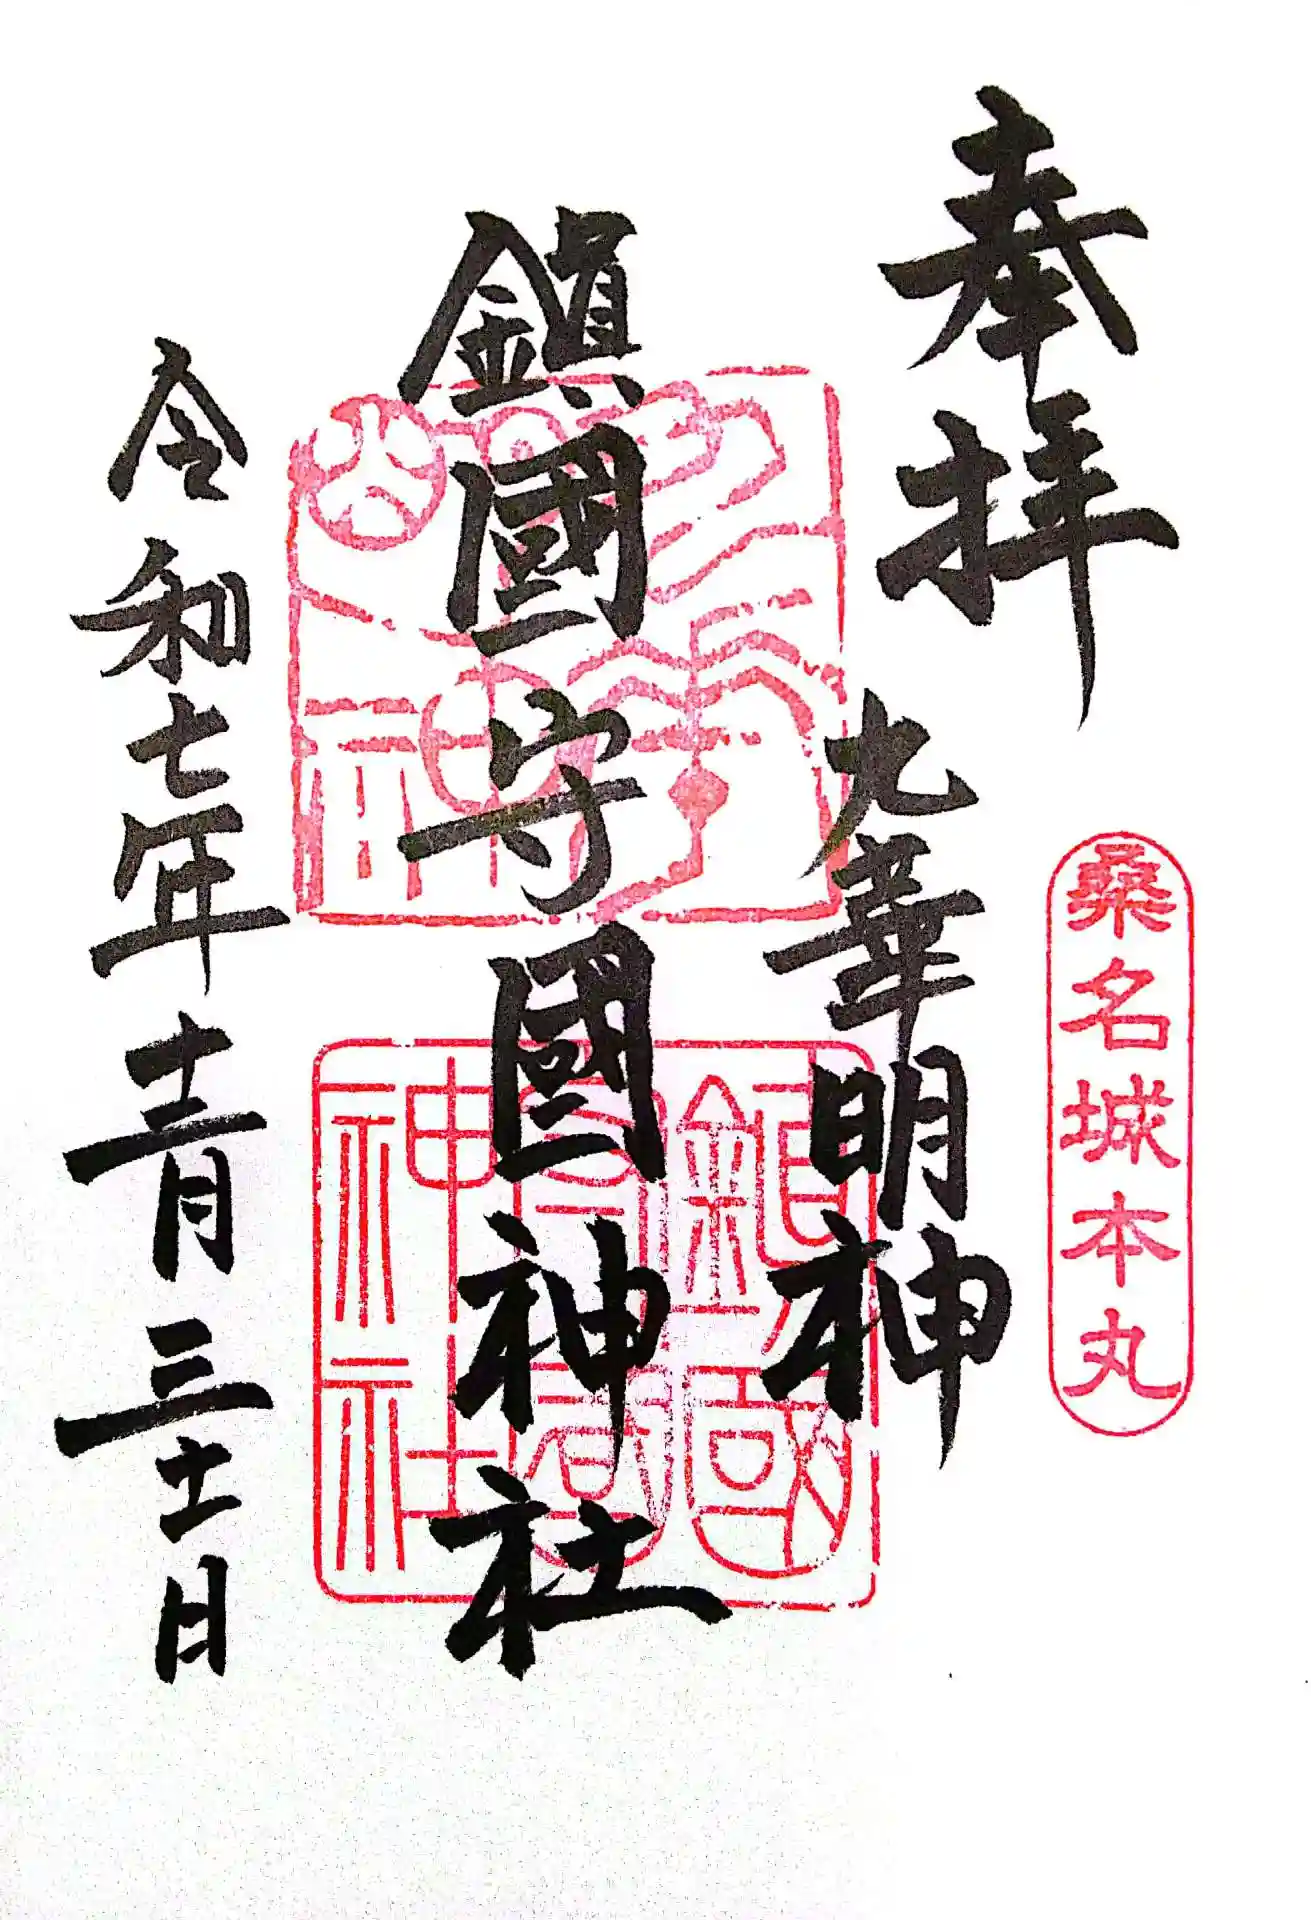 奉拝
桑名城本丸
九華明神
鎮國守國神社
令和七年十二月三十一日
鎮國守國神社